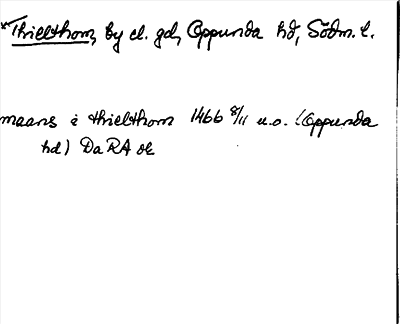 *Thielthom, by el. gd, Oppunda hd, Södm. l.
maans i thielthom 1466 8/11 u.o. (Oppunda
hd) Da RA or